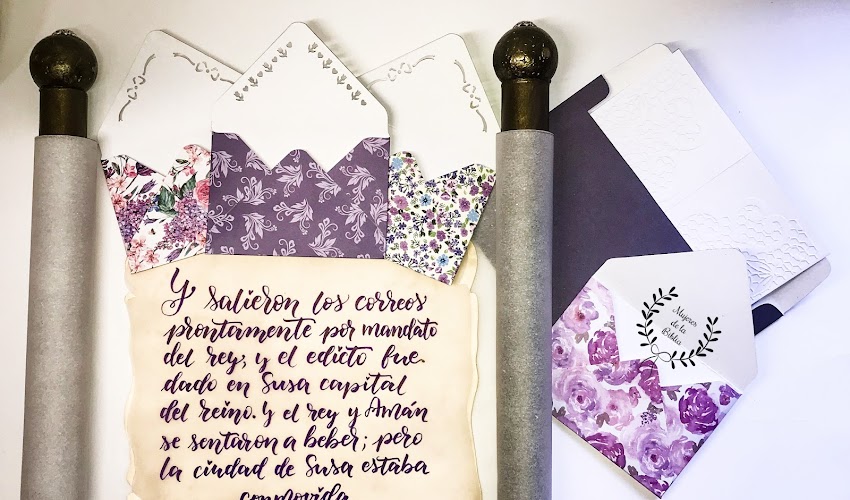 Y salieron los correos
prontamente por mandato
del rey, y el edicto fue
dado en Susa capital
del reino. Y el rey y Amán
se sentaron a beber; pero
la ciudad de Susa estaba
conmovida
Mujeres
de la
Biblia